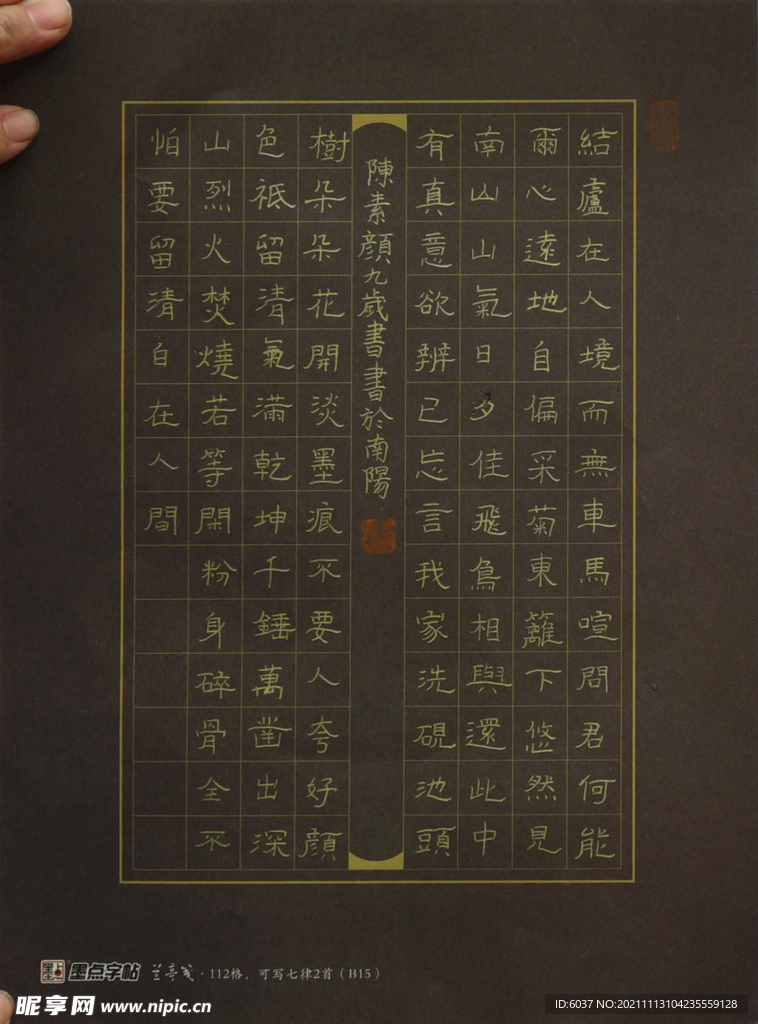 結廬在人境而無車馬喧問君何能
爾心遠地自偏采菊東籬下悠然見
南山山氣日夕佳飛鳥相與還此中
有真意欲辨已忘言我家洗硯池頭
陳素顔九歲書書於南陽
樹朵朵花開淡墨痕不要人夸好顔
色祗留清氣滿乾坤千錘萬凿出深
山烈火焚燒若等閑粉身碎骨全不
怕要留清白在人間
墨点字帖 兰亭笺·112格，可写七律2首（B15）
昵享网 www.nipic.cn
ID:6037 NO:20211113104235559128